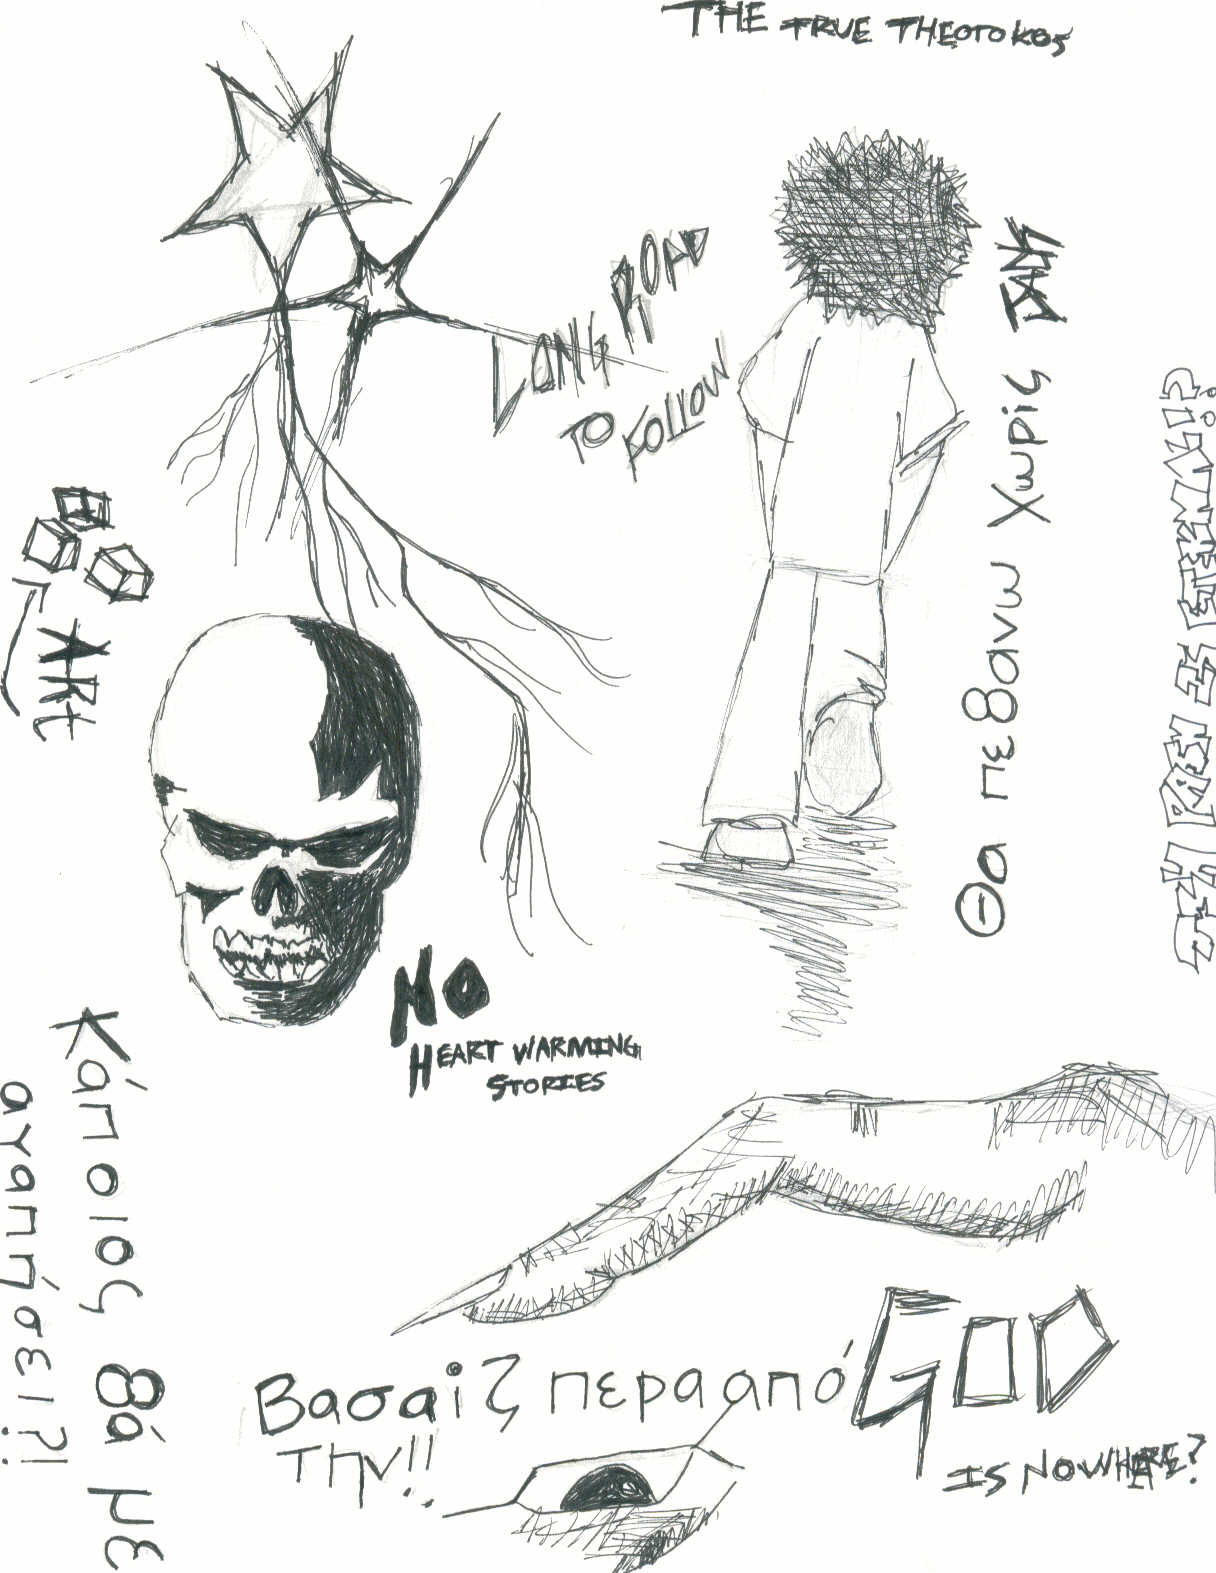 THE TRUE THEOTOKOS
LONG ROAD
TO FOLLOW
Θα πεθανω Χωρις
IS ETERNAL
ARt
NO
HEART WARMING
STORIES
Κάποιος θά με
αγαπήσει?!
Βασαiζ περα από
την!!
GOD
IS NOWHERE?